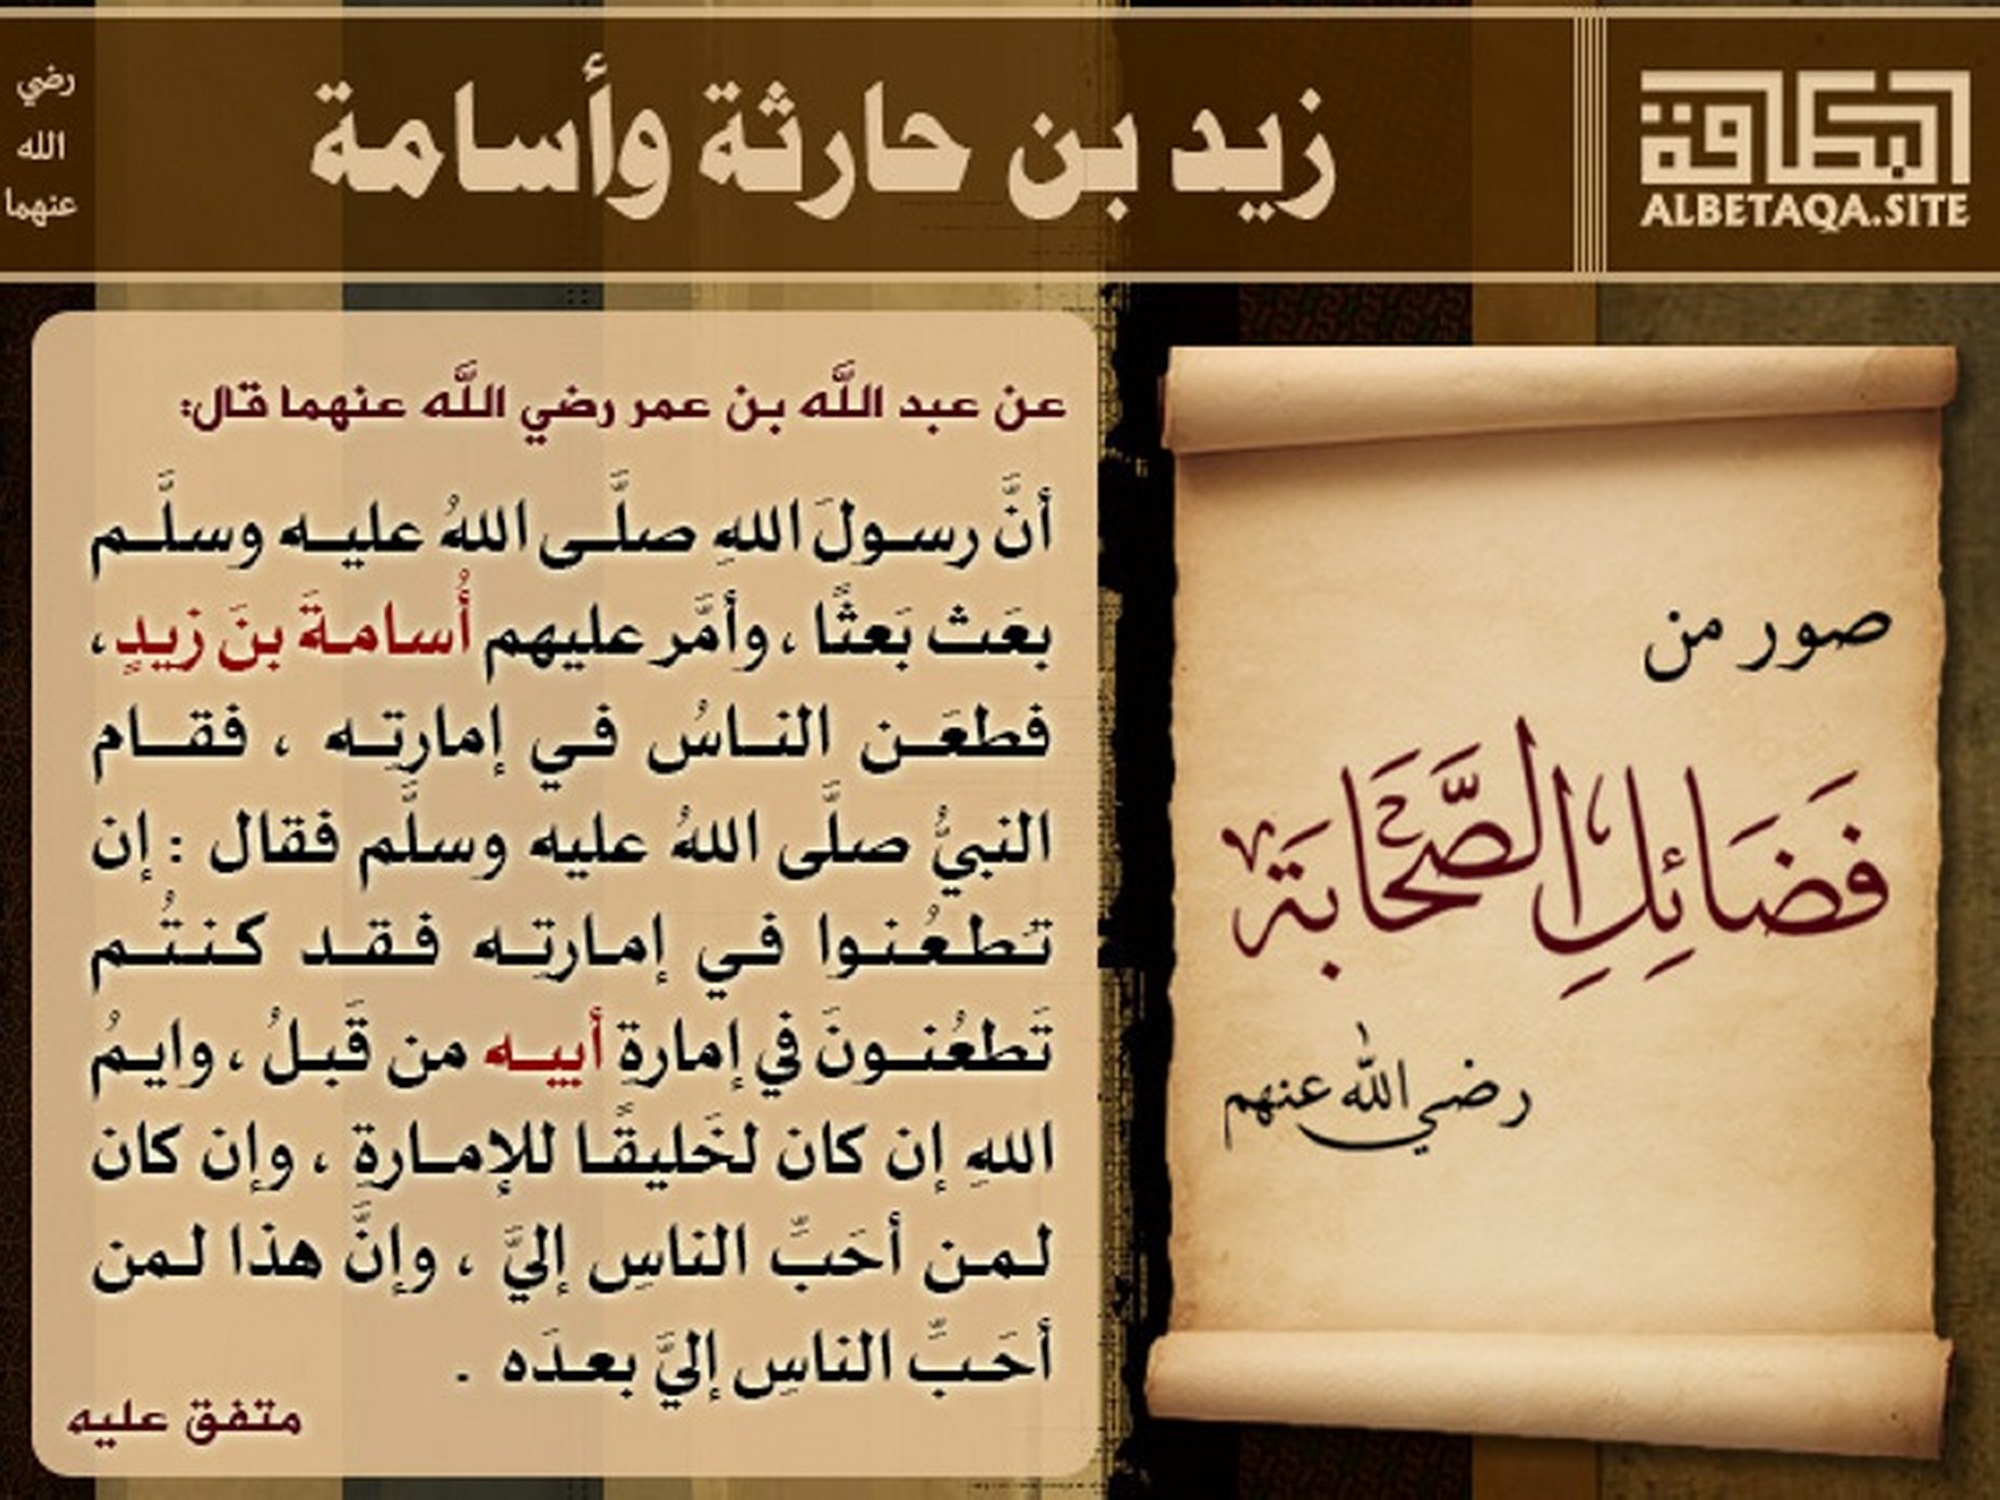 البطاقة
ALBETAQA.SITE
زيد بن حارثة وأسامة
رضي
الله
عنهما
صور من
فَضَائِلِ الصَّحَابَة
رضي الله عنهم
عن عبد اللَّه بن عمر رضي اللَّه عنهما قال:
أنَّ رسولَ اللهِ صلَّى اللهُ عليه وسلَّم
بعَث بَعثًا ، وأمَّر عليهم أُسامةَ بنَ زيدٍ ،
فطعَن الناسُ في إمارتِه ، فقام
النبيُّ صلَّى اللهُ عليه وسلَّم فقال : إن
تَطعُنوا في إمارتِه فقد كنتُم
تَطعُنونَ في إمارةِ أبيه من قَبلُ ، وايمُ
اللهِ إن كان لخَليقًا للإمارةِ ، وإن كان
لمن أحَبِّ الناسِ إليَّ ، وإنَّ هذا لمن
أحَبِّ الناسِ إليَّ بعدَه .
متفق عليه